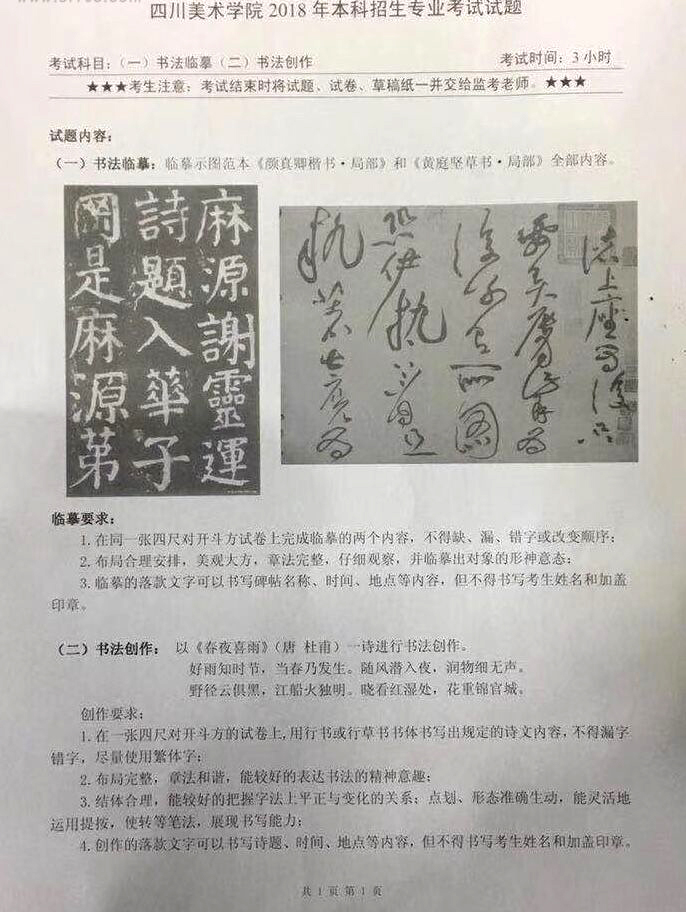 四川美术学院 2018 年本科招生专业考试试题
考试科目：（一）书法临摹（二）书法创作 考试时间：3 小时
★★★考生注意：考试结束时将试题、试卷、草稿纸一并交给监考老师。★★★
试题内容：
（一）书法临摹：临摹示图范本《颜真卿楷书·局部》和《黄庭坚草书·局部》全部内容。
麻源謝靈運
詩題入華子
岡是麻源第
諸上座為復只
執著世界為
临摹要求：
1.在同一张四尺对开斗方试卷上完成临摹的两个内容，不得缺、漏、错字或改变顺序；
2.布局合理安排，美观大方，章法完整，仔细观察，并临摹出对象的形神意态；
3.临摹的落款文字可以书写碑帖名称、时间、地点等内容，但不得书写考生姓名和加盖
印章。
（二）书法创作： 以《春夜喜雨》（唐 杜甫）一诗进行书法创作。
好雨知时节，当春乃发生。随风潜入夜，润物细无声。
野径云俱黑，江船火独明。晓看红湿处，花重锦官城。
创作要求：
1.在一张四尺对开斗方的试卷上,用行书或行草书书体书写出规定的诗文内容,不得漏字
错字，尽量使用繁体字；
2.布局完整，章法和谐，能较好的表达书法的精神意趣；
3.结体合理，能较好的把握字法上平正与变化的关系；点划、形态准确生动，能灵活地
运用提按，使转等笔法，展现书写能力；
4.创作的落款文字可以书写诗题、时间、地点等内容，但不得书写考生姓名和加盖印章。
共 1 页 第 1 页